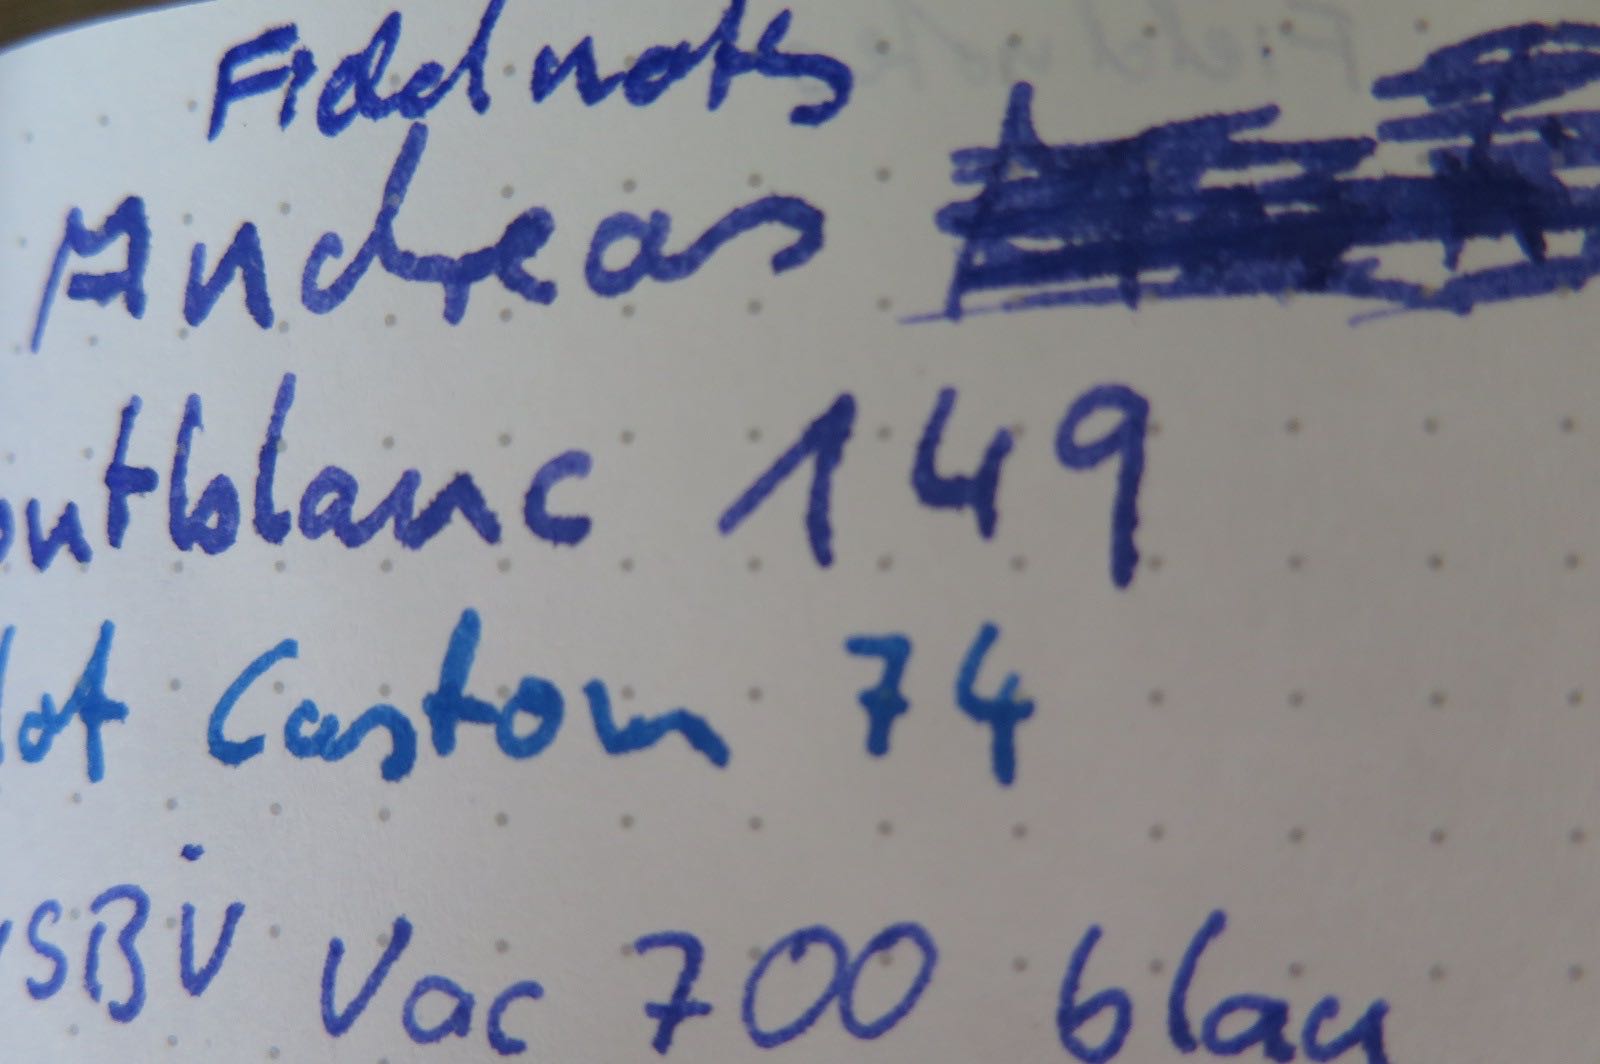 Fieldnotes
Andreas
ontblanc 149
lot Custom 74
WSBI Vac 700 blau